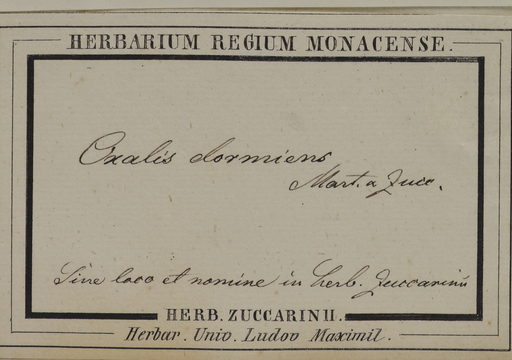 HERBARIUM REGIUM MONACENSE.
Oxalis dormiens
Mart. a Zucc.
Sine loco et nomine in herb. Zuccarinii
HERB. ZUCCARINII.
Herbar. Univ. Ludov Maximil.